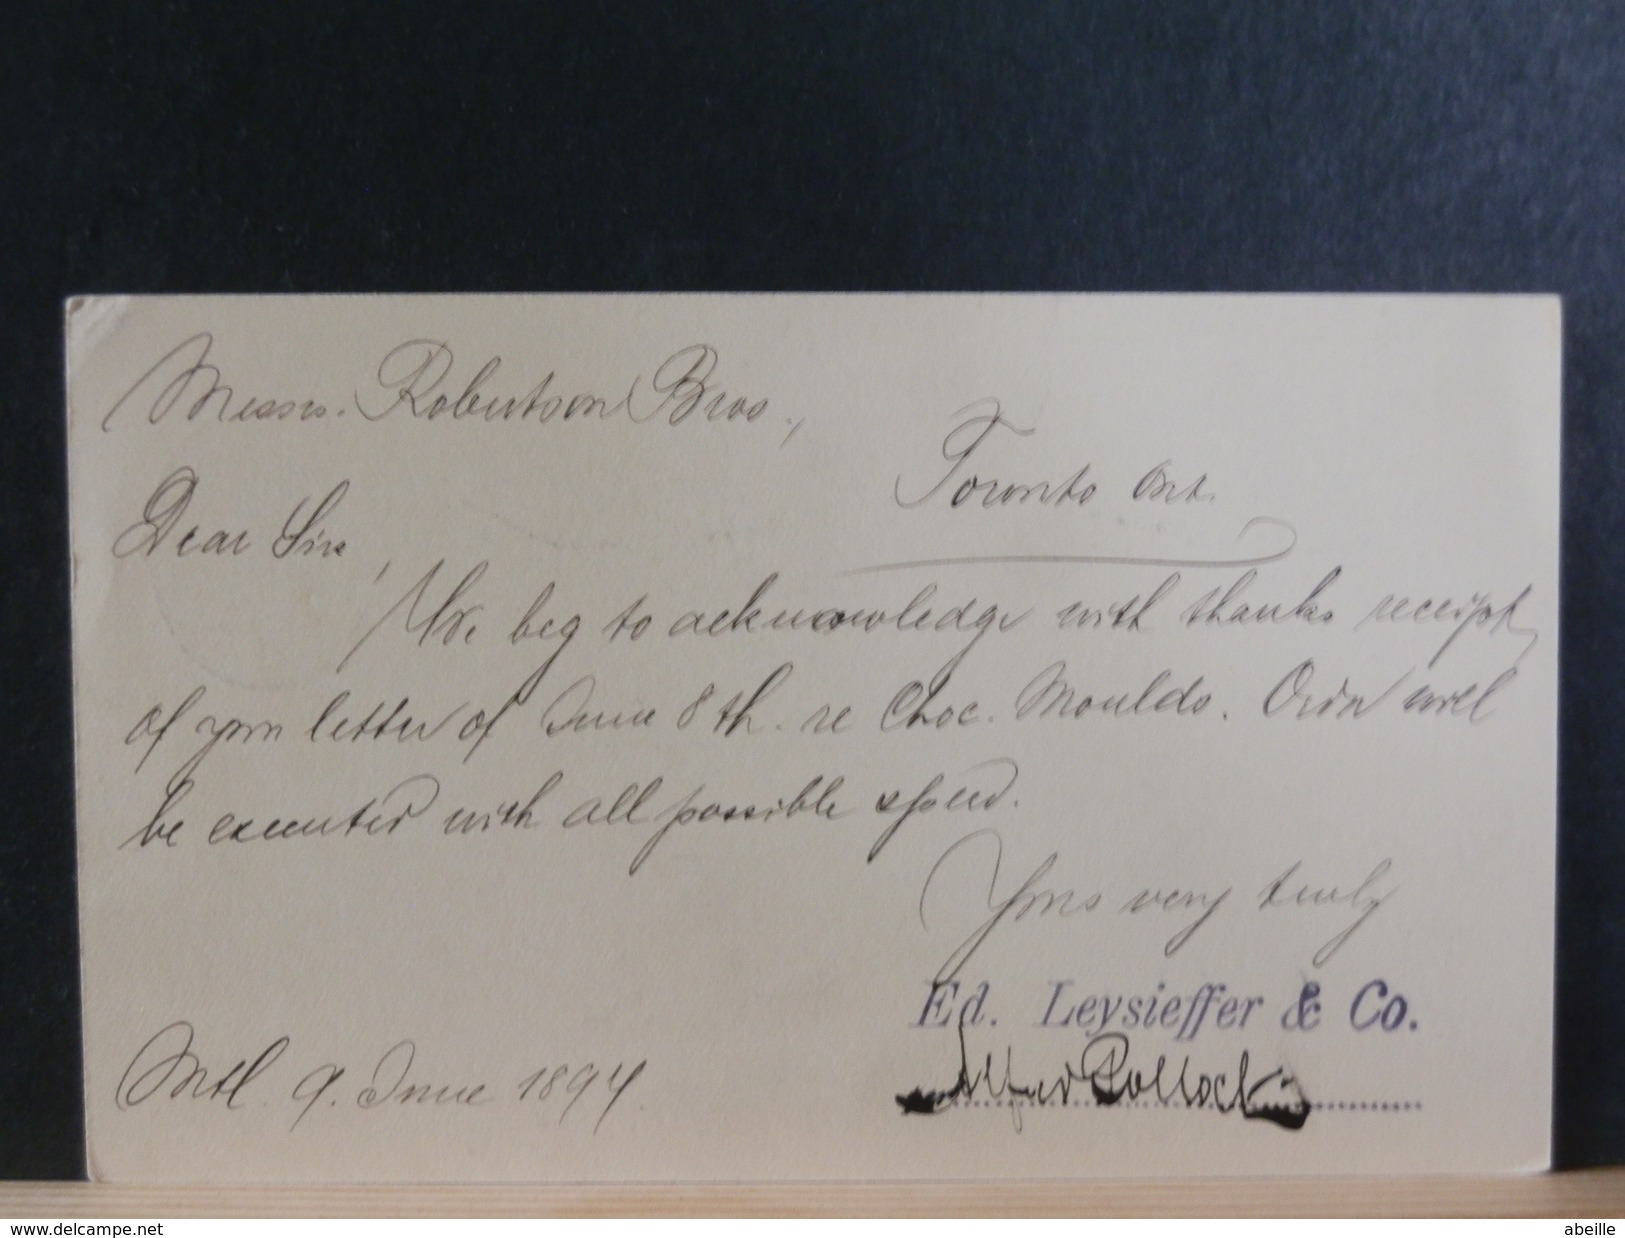 Messrs. Robertson Bros.,
Toronto Ont.
Dear Sirs,
We beg to acknowledge with thanks receipt
of your letter of June 8th. re Choc. Moulds. Order will
be executed with all possible speed.
Yours very truly
Ed. Leysieffer & Co.
Alfred Pollock
Mtl. 9. June 1894.
www.delcampe.net
abeille